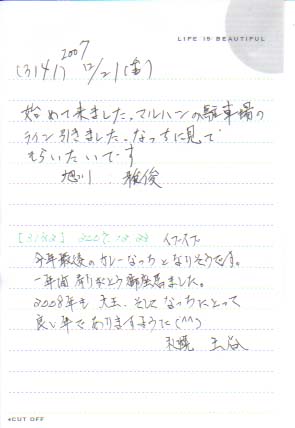 LIFE IS BEAUTIFUL
2007
(3141) 12/21(金)
始めて来ました。マルハンの駐車場の
ライン引きました。なっちに見て
もらいたいです
旭川 雅俊
[3142] 2007.12.23 イブイブ
今年最後のカレーなっちとなりそうです。
一年間ありがとう御座いました。
2008年も 大王、そして なっちにとって
良い年でありますように(^^)
札幌 玉谷
◂CUT OFF